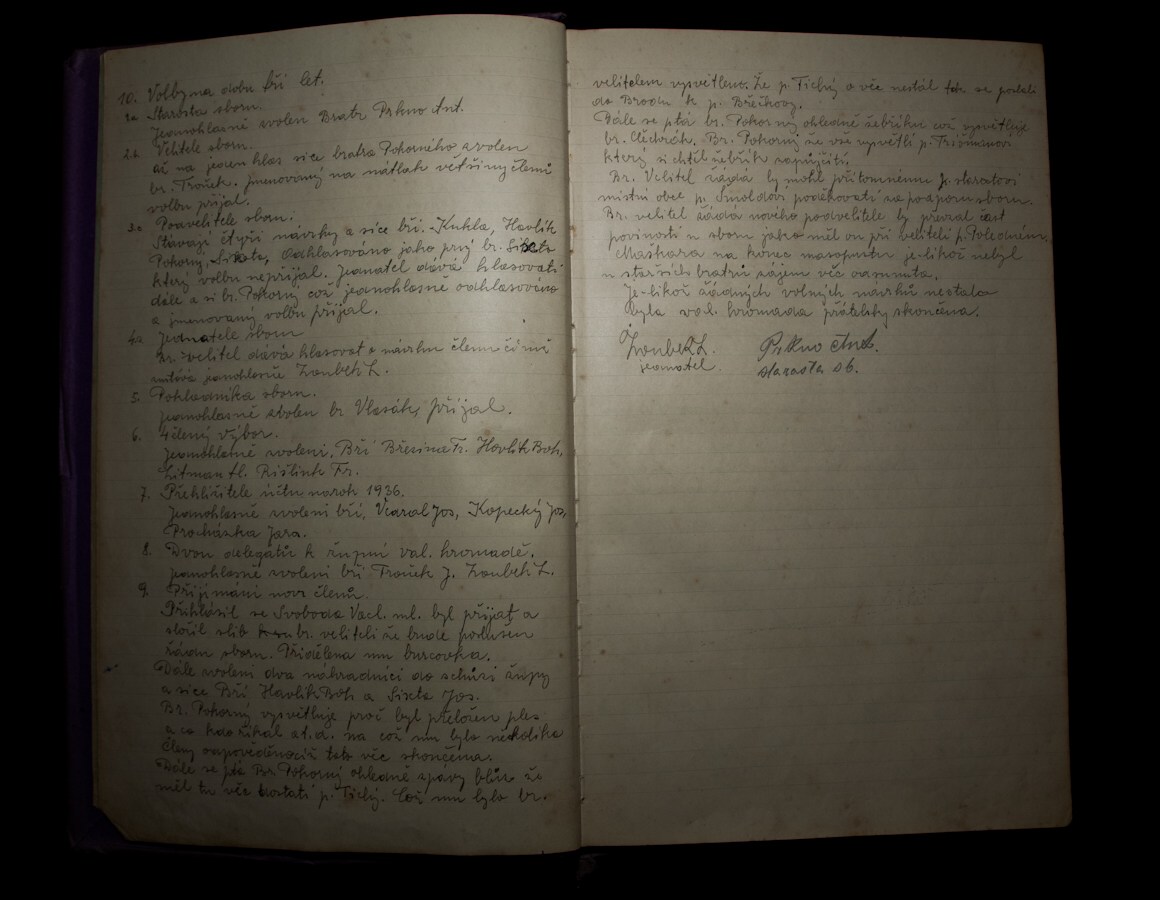 10. Volby na dobu tří let.
1a Starosta sboru.
Jednohlasně zvolen Bratr Prkno Ant.
2.b Velitele sboru.
až na jeden hlas sice bratra Pokorného zvolen
br. Trouček. jmenovaný na nátlak většiny členů
volbu přijal.
3.c Podvelitele sboru.
Stávají čtyři návrhy a sice bří. Kukla, Havlík
Pokorný, Sixta, Odhlasováno jako prvý br. Sixta
který volbu nepřijal. Jednatel dává hlasovati
dále a si br. Pokorny což jednohlasně odhlasováno
a jmenovaný volbu přijal.
4.a Jednatele sboru
br. velitel dává hlasovat o návrhu členů
jednohlasně Zoubek L.
5. Pokladníka sboru.
Jednohlasně zvolen br Vlasák, přijal.
6. 4člený výbor.
Jednohlasně zvoleni, Bří Březina Fr. Havlík Boh,
Litman Fl. Rištink Fr.
7. Přehližitele účtu na rok 1936.
Jednohlasně zvoleni bří, Vcaral Jos, Kopecký Jos,
Procházka Jara.
8. Dvou delegátů k župní val. hromadě.
jednohlasně zvoleni bří Trouček J. Zoubek L.
9. Přijímání nových členů.
Přihlásil se Svoboda Vacl. ml. byl přijat a
složil slib br. veliteli že bude poslušen
řádu sboru. Přidělena mu burcovka.
Dále zvoleni dva náhradníci do schůzí župy
a sice Bří Havlík Boh a Sixta Jos.
Br. Pokorný vysvětluje proč byl přeložen ples
a co kdo říkal a t.d. na což mu bylo několika
členy odpověděno čís tato věc skončena.
Dále se ptá Br. Pokorný ohledně zpávy blůz že
měl tu věc dostati p. Tichý. Což mu bylo br.
velitelem vysvětleno. Že p. Tichý o věc nestál tak se poslali
do Brodu k p. Břečkovy.
Dále se ptá br. Pokorny ohledně žebříku což vysvětluje
br. Clěchrák. Br. Pokorný že vše vysvětli p.
který si chtěl žebřík zapůjčiti.
Br. Velitel žádá by mohl přítomnému p. starostovi
místní obce p. Smoldovi poděkovati za podporu sboru.
Br. velitel žádá nového podvelitele by převzal část
povinností u sboru jako měl on při veliteli p. Poledním,
Maškara na konec masopustu je-likož nebyl
u starších bratrů zájem věc odsunuta.
Je-likož žádných volných návrhů nestalo
byla val. hromada přátelsky skončena.
Zoubek L. Prkno Ant.
jednatel. starosta sb.